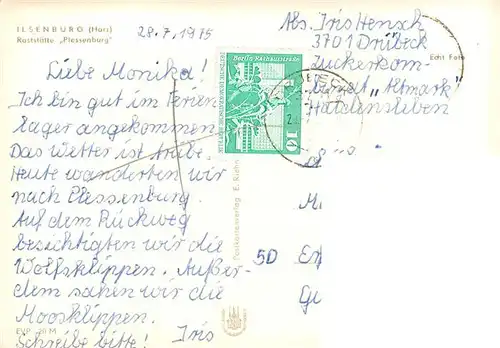 ILSENBURG (Harz)
Raststätte „Plessenburg"
28.7.1975
Liebe Monika!
Ich bin gut im Ferien
lager angekommen.
Das Wetter ist trübe.
Heute wanderten wir
nach Plessenburg.
Auf dem Rückweg
besichtigten wir die
Wolfsklippen. Außer-
dem sahen wir die
Moosklippen.
Schreibe bitte! Iris
EVP
Abs. Iris Hensch
3701 Drübeck
Zuckerkom-
binat „Altmark"
Haldensleben
Echt Foto
Berlin Rathausstraße
10
Postkartenverlag E. Riehn
5D